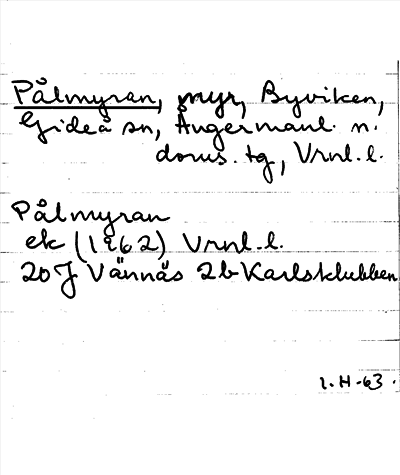 Pålmyran, myr, Byviken,
Gideå sn, Ångermanl. n.
doms. tg, Vrnl. l.
Pålmyran
ek (1962) Vrnl. l.
20 J Vännäs 2b Karlsklubben
1. H -63.